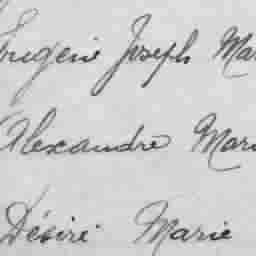 Eugène Joseph Mar
Alexandre Mari
Désiré Marie